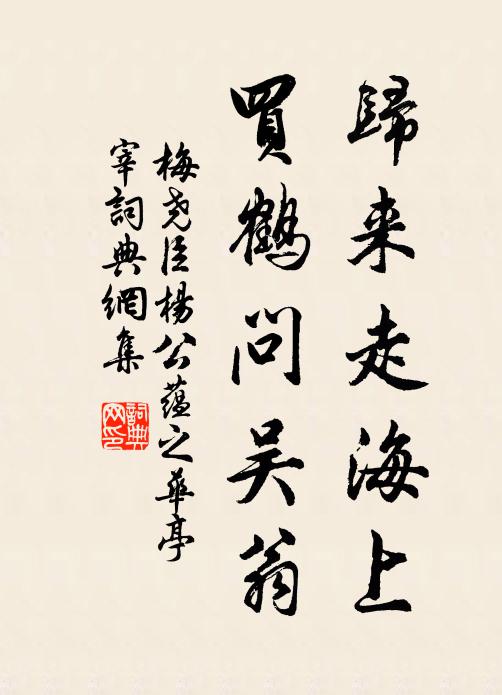 歸来走海上
買鶴問吴翁
梅尧臣楊公蕴之華亭
宰詞典網集
詞典网印